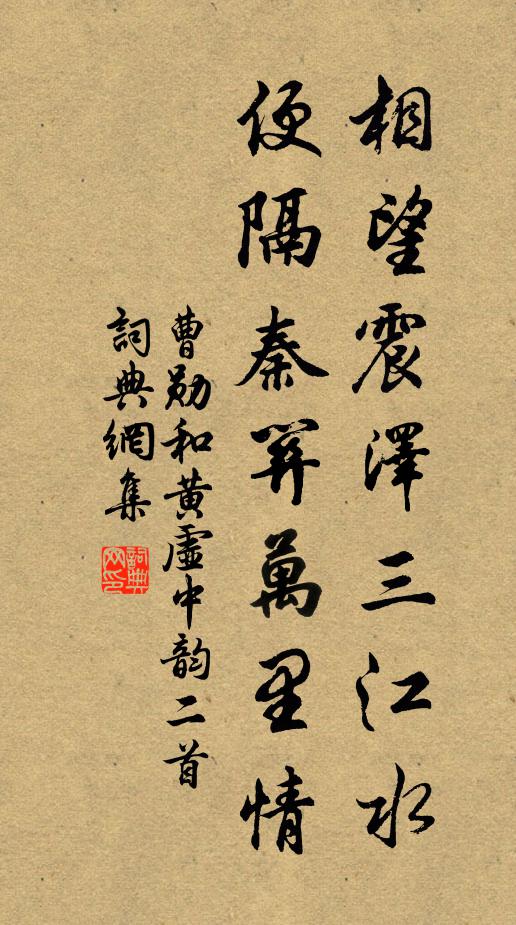 相望震澤三江水
便隔秦关萬里情
曹勛和黃虛中韵二首
詞典網集
詞典網印